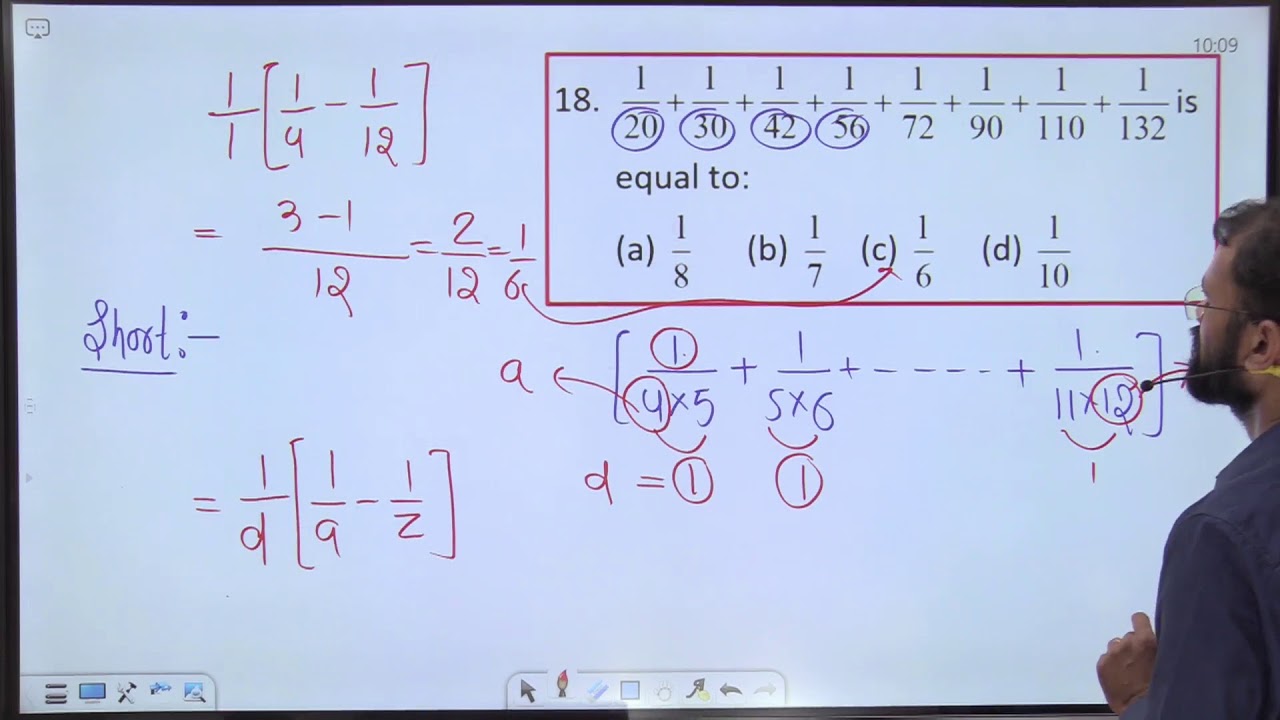 10:09
18. 1/20 + 1/30 + 1/42 + 1/56 + 1/72 + 1/90 + 1/110 + 1/132 is
equal to:
(a) 1/8 (b) 1/7 (c) 1/6 (d) 1/10
1/1 [1/4 - 1/12]
= 3-1/12 = 2/12 = 1/6
Short:-
a ← [1/4×5 + 1/5×6 + ----- + 1/11×12]
d = 1 1 1
= 1/d [1/a - 1/z]